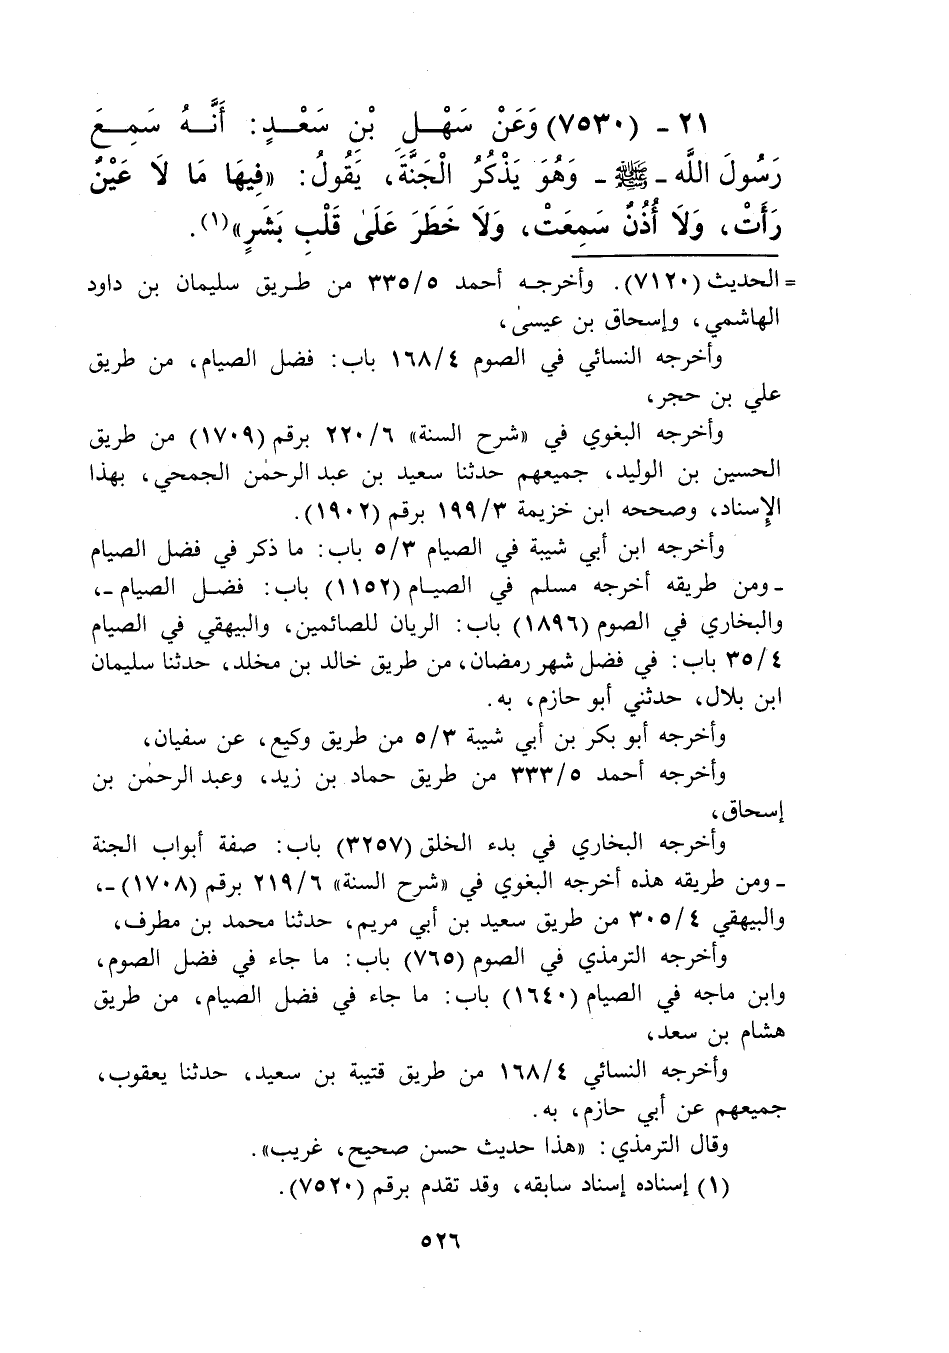 ٢١ - (٧٥٣٠) وَعَنْ سَهْلِ بْنِ سَعْدٍ: أَنَّهُ سَمِعَ
رَسُولَ اللَّه - ﷺ - وَهُوَ يَذْكُرُ الْجَنَّةَ، يَقُولُ: «فِيهَا مَا لَا عَيْنٌ
رَأَتْ، وَلَا أُذُنٌ سَمِعَتْ، وَلَا خَطَرَ عَلَىٰ قَلْبِ بَشَرٍ»(١).
= الحديث (٧١٢٠). وأخرجه أحمد ٣٣٥/٥ من طريق سليمان بن داود
الهاشمي، وإسحاق بن عيسىٰ،
وأخرجه النسائي في الصوم ١٦٨/٤ باب: فضل الصيام، من طريق
علي بن حجر،
وأخرجه البغوي في «شرح السنة» ٢٢٠/٦ برقم (١٧٠٩) من طريق
الحسين بن الوليد، جميعهم حدثنا سعيد بن عبد الرحمٰن الجمحي، بهذا
الإِسناد، وصححه ابن خزيمة ١٩٩/٣ برقم (١٩٠٢).
وأخرجه ابن أبي شيبة في الصيام ٥/٣ باب: ما ذكر في فضل الصيام
- ومن طريقه أخرجه مسلم في الصيام (١١٥٢) باب: فضل الصيام -،
والبخاري في الصوم (١٨٩٦) باب: الريان للصائمين، والبيهقي في الصيام
٣٥/٤ باب: في فضل شهر رمضان، من طريق خالد بن مخلد، حدثنا سليمان
ابن بلال، حدثني أبو حازم، به.
وأخرجه أبو بكر بن أبي شيبة ٥/٣ من طريق وكيع، عن سفيان،
وأخرجه أحمد ٣٣٣/٥ من طريق حماد بن زيد، وعبد الرحمٰن بن
إسحاق،
وأخرجه البخاري في بدء الخلق (٣٢٥٧) باب: صفة أبواب الجنة
- ومن طريقه هذه أخرجه البغوي في «شرح السنة» ٢١٩/٦ برقم (١٧٠٨) -،
والبيهقي ٣٠٥/٤ من طريق سعيد بن أبي مريم، حدثنا محمد بن مطرف،
وأخرجه الترمذي في الصوم (٧٦٥) باب: ما جاء في فضل الصوم،
وابن ماجه في الصيام (١٦٤٠) باب: ما جاء في فضل الصيام، من طريق
هشام بن سعد،
وأخرجه النسائي ١٦٨/٤ من طريق قتيبة بن سعيد، حدثنا يعقوب،
جميعهم عن أبي حازم، به.
وقال الترمذي: «هذا حديث حسن صحيح، غريب».
(١) إسناده إسناد سابقه، وقد تقدم برقم (٧٥٢٠).
٥٢٦